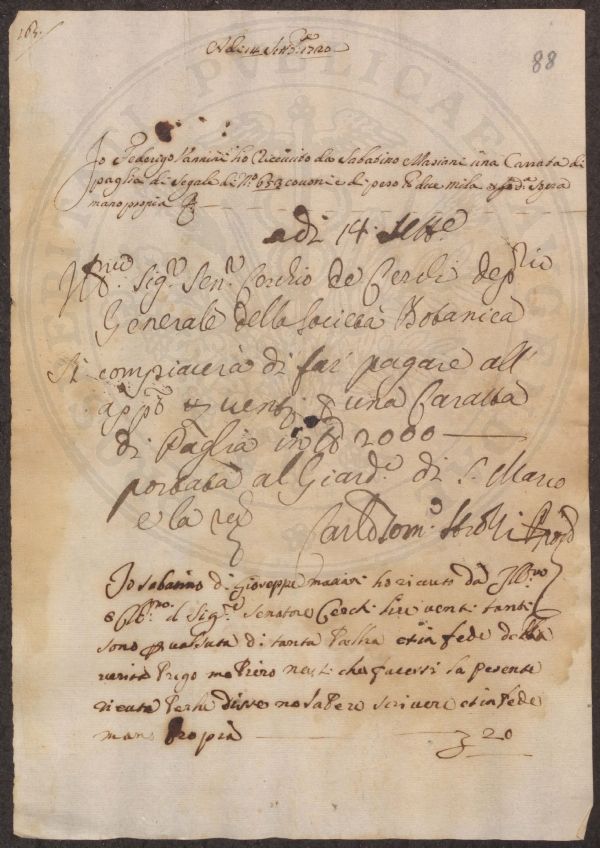 163.
88
A dì 14 Sett.e 1720
Io Federigo Vannini ho Riceuuto da Sabatino Mariani una Carrata di
paglia di Segale di N.o 653 couoni e di peso lb due mila
mano propria
adì 14. Sette.
Sig.r Sen.r Cerchio de Cerchi dep.rio
Generale della Società Botanica
Si compiacerà di far pagare all'
app.o uenti una Caratta
di Paglia in lb 2000
portata al Giard.o di S. Marco
e la re
Carl Tom.o Strozzi
Io sabatino di Gioseppe mariani ho riceuto da Ill.mo
e Cl.mo il Sig.re Senatore Cerchi lire uenti tanti
sono p ualsuta di tanta Paglia et in fede della
uerità Prego me Piero che facessi la presente
riceuta Perche disse no saPere scriuere et in fede
mano Propia 20